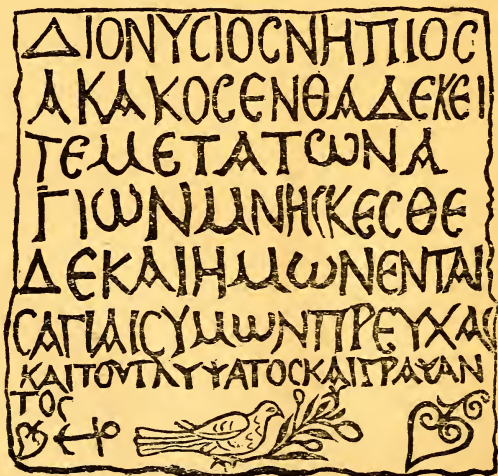 ΔΙΟΝΥϹΙΟϹΝΗΠΙΟϹ
ΑΚΑΚΟϹΕΝΘΑΔΕΚΕΙ
ΤΕΜΕΤΑΤωΝΑ
ΓΙωΝΜΝΗϹΚΕϹΘΕ
ΔΕΚΑΙΗΜωΝΕΝΤΑΙ
ϹΑΓΙΑΙϹΥΜωΝΠΡΕΥΧΑϹ
ΚΑΙΤΟΥΓΛΥΨΑΤΟϹΚΑΙΓΡΑΨΑΝ
ΤΟϹ